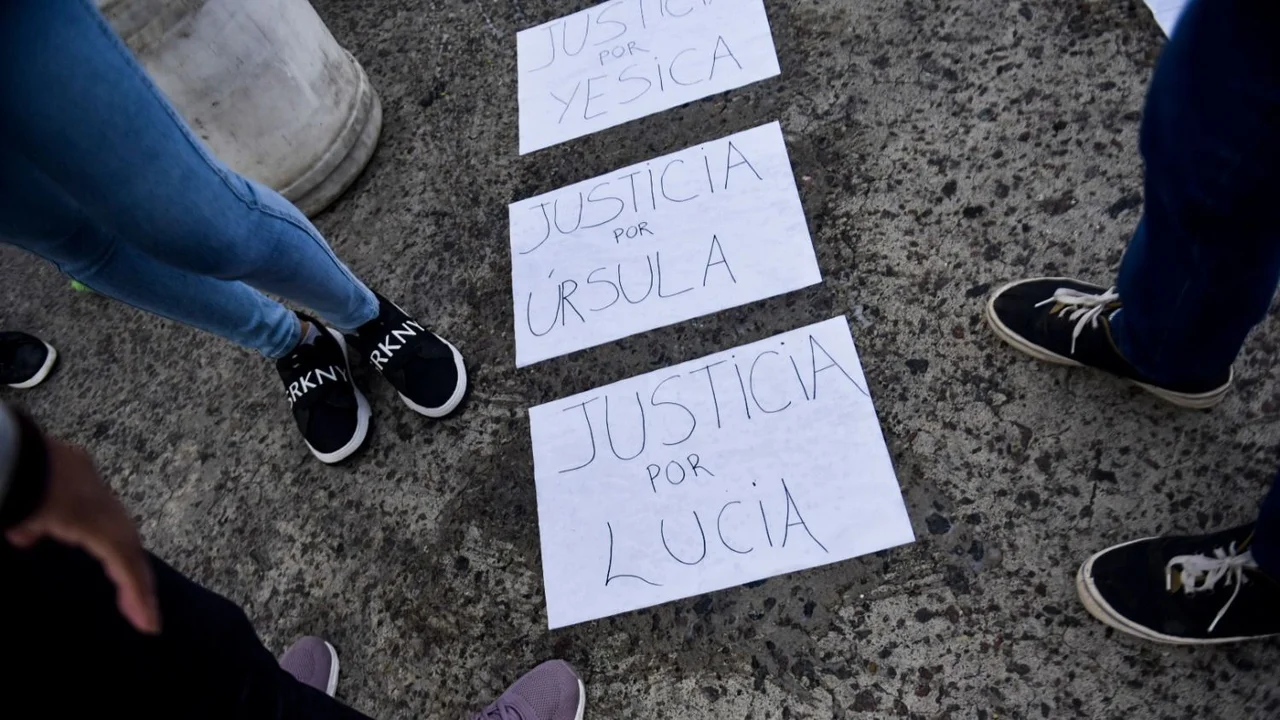 JUSTICIA
POR
YESICA
JUSTICIA
POR
ÚRSULA
JUSTICIA
POR
LUCIA
RKNY
RKNY